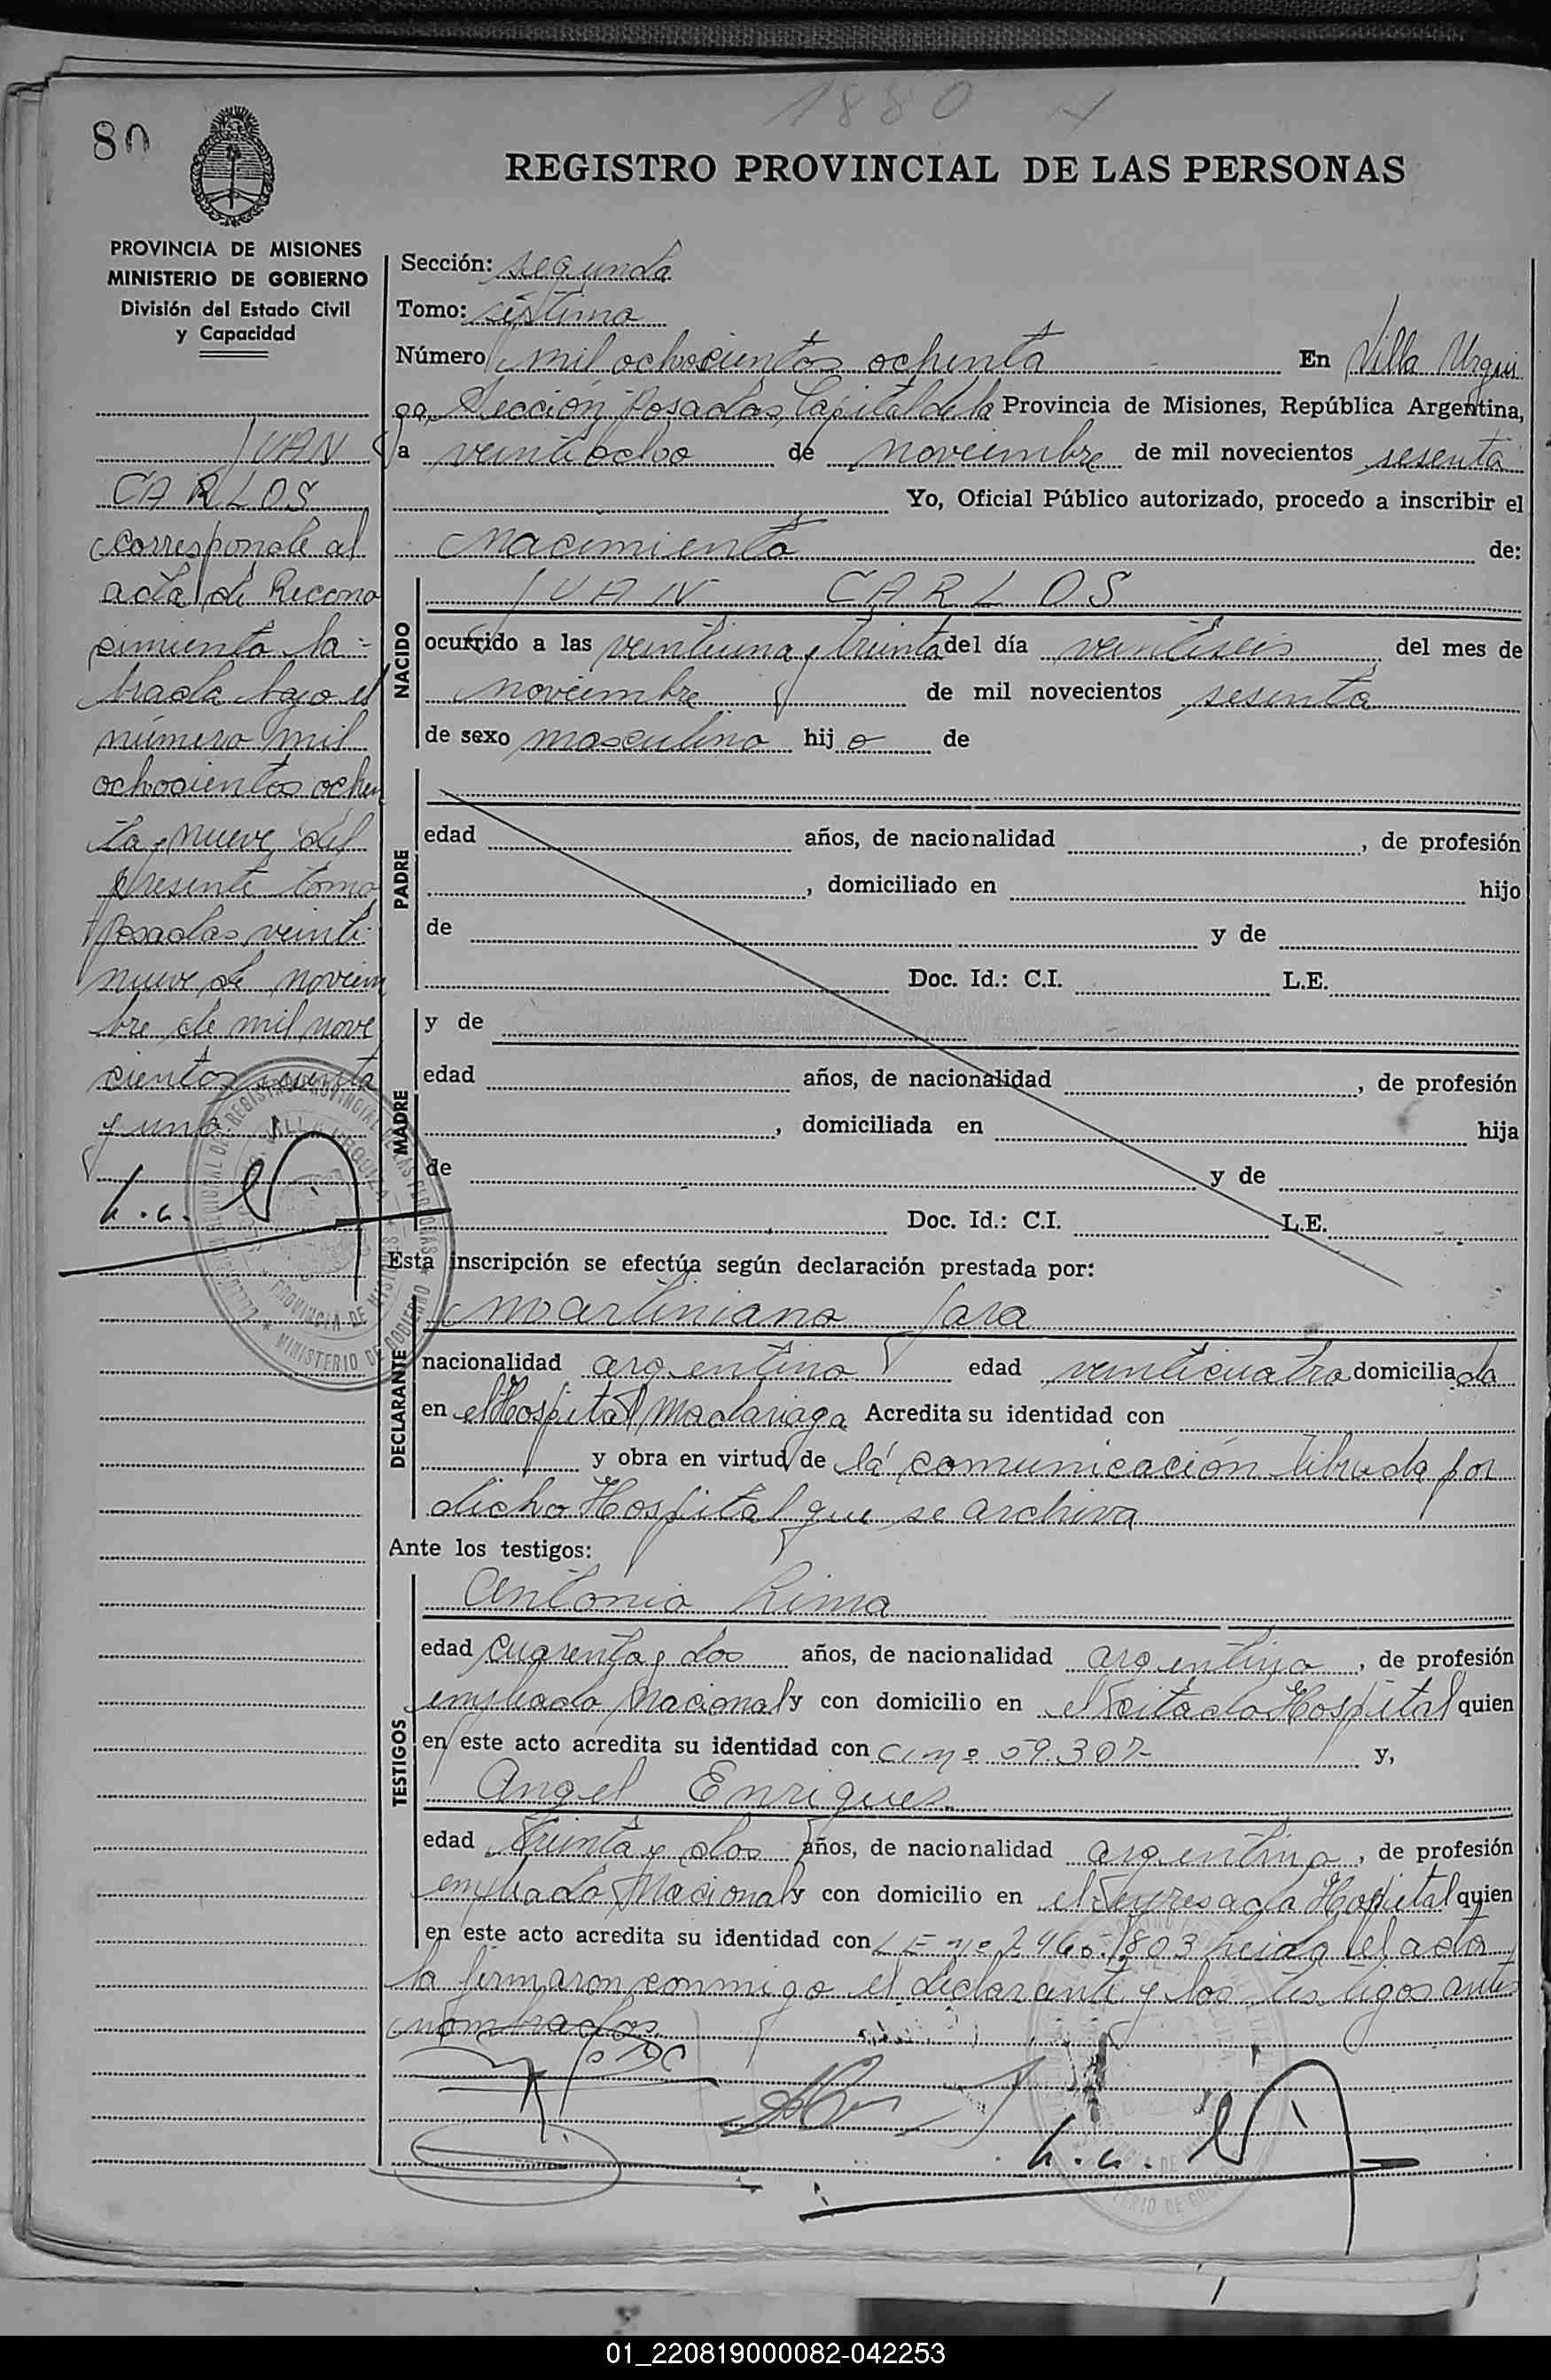 1880
80
REGISTRO PROVINCIAL DE LAS PERSONAS
PROVINCIA DE MISIONES
MINISTERIO DE GOBIERNO
División del Estado Civil
y Capacidad
JUAN
CARLOS
corresponde al
acta de Recono
cimiento la=
brada bajo el
número mil
ochocientos ochen
ta y nueve del
presente tomo
Posadas veinti
nueve de noviem
bre de mil nove
cientos
y uno
Sección: segunda
Tomo: séptimo
Número mil ochocientos ochenta En Villa Urqui
za, Sección Posadas, Capital de la Provincia de Misiones, República Argentina,
a veintiocho de noviembre de mil novecientos sesenta
Yo, Oficial Público autorizado, procedo a inscribir el
nacimiento de:
NACIDO
JUAN CARLOS
ocurrido a las veintiuna y treinta del día veintiseis del mes de
noviembre de mil novecientos sesenta
de sexo masculino hijo de
PADRE
edad años, de nacionalidad , de profesión
, domiciliado en hijo
de y de
Doc. Id.: C.I. L.E.
MADRE
y de
edad años, de nacionalidad , de profesión
, domiciliada en hija
de y de
Doc. Id.: C.I. L.E.
Esta inscripción se efectúa según declaración prestada por:
DECLARANTE
Martiniano Jara
nacionalidad argentino edad veinticuatro domiciliado
en el Hospital Madariaga Acredita su identidad con
y obra en virtud de la comunicación librada por
dicho Hospital que se archiva
Ante los testigos:
TESTIGOS
Antonio Lima
edad cuarenta y dos años, de nacionalidad argentino, de profesión
empleado Nacional y con domicilio en el citado Hospital quien
en este acto acredita su identidad con CI nº 59.307 y,
Angel Enriques
edad treinta y dos años, de nacionalidad argentino, de profesión
empleado Nacional y con domicilio en el expresado Hospital quien
en este acto acredita su identidad con LE nº Leida el acta
la firmaron conmigo el declarante y los testigos antes
nombrados
01_220819000082-042253